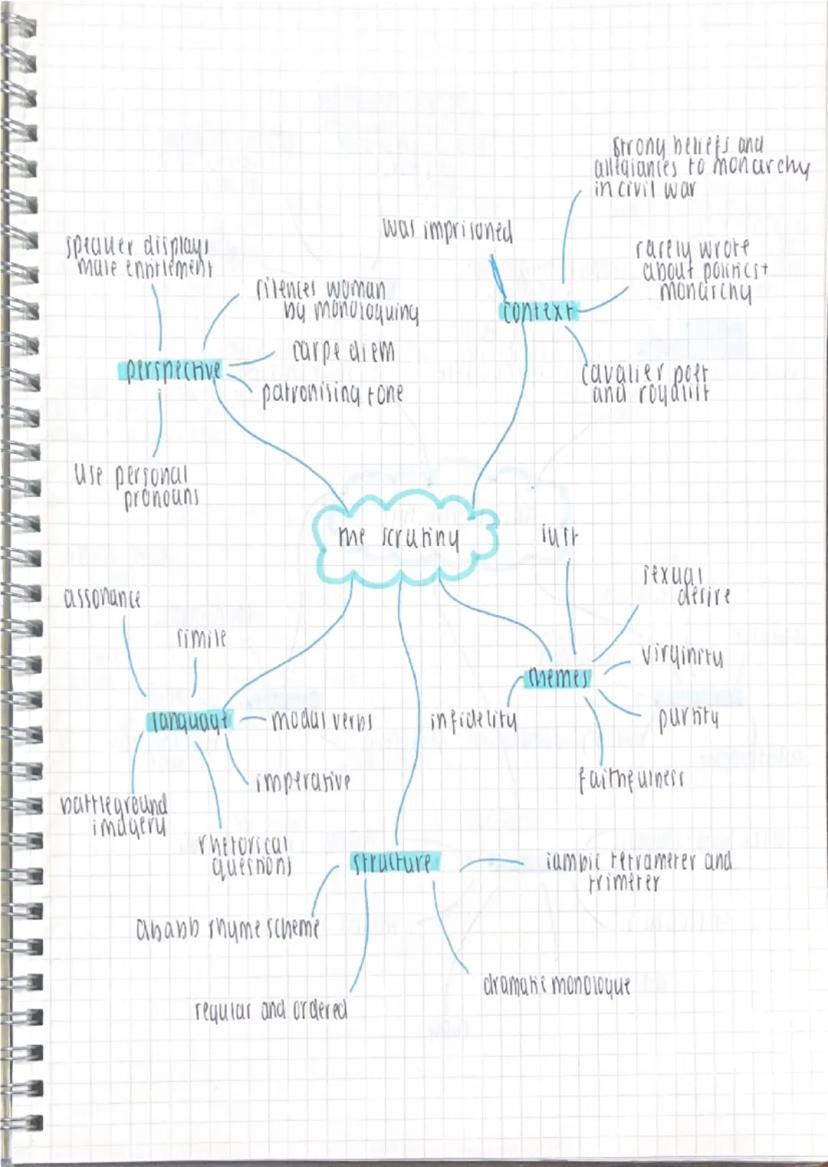 strong beliefs and
allegiances to monarchy
in civil war
was imprisoned
rarely wrote
about politics +
monarchy
context
cavalier poet
and royalist
speaker displays
male entitlement
silences woman
by monologuing
carpe diem
perspective
patronising tone
use personal
pronouns
the scrutiny
lust
sexual
desire
virginity
themes
purity
infidelity
faithfulness
assonance
simile
language
modal verbs
imperative
battleground
imagery
rhetorical
questions
structure
iambic tetrameter and
trimeter
ababb rhyme scheme
dramatic monologue
regular and ordered